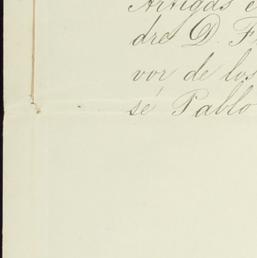 Artigas e
dre D. F
vor de los
sé Pablo